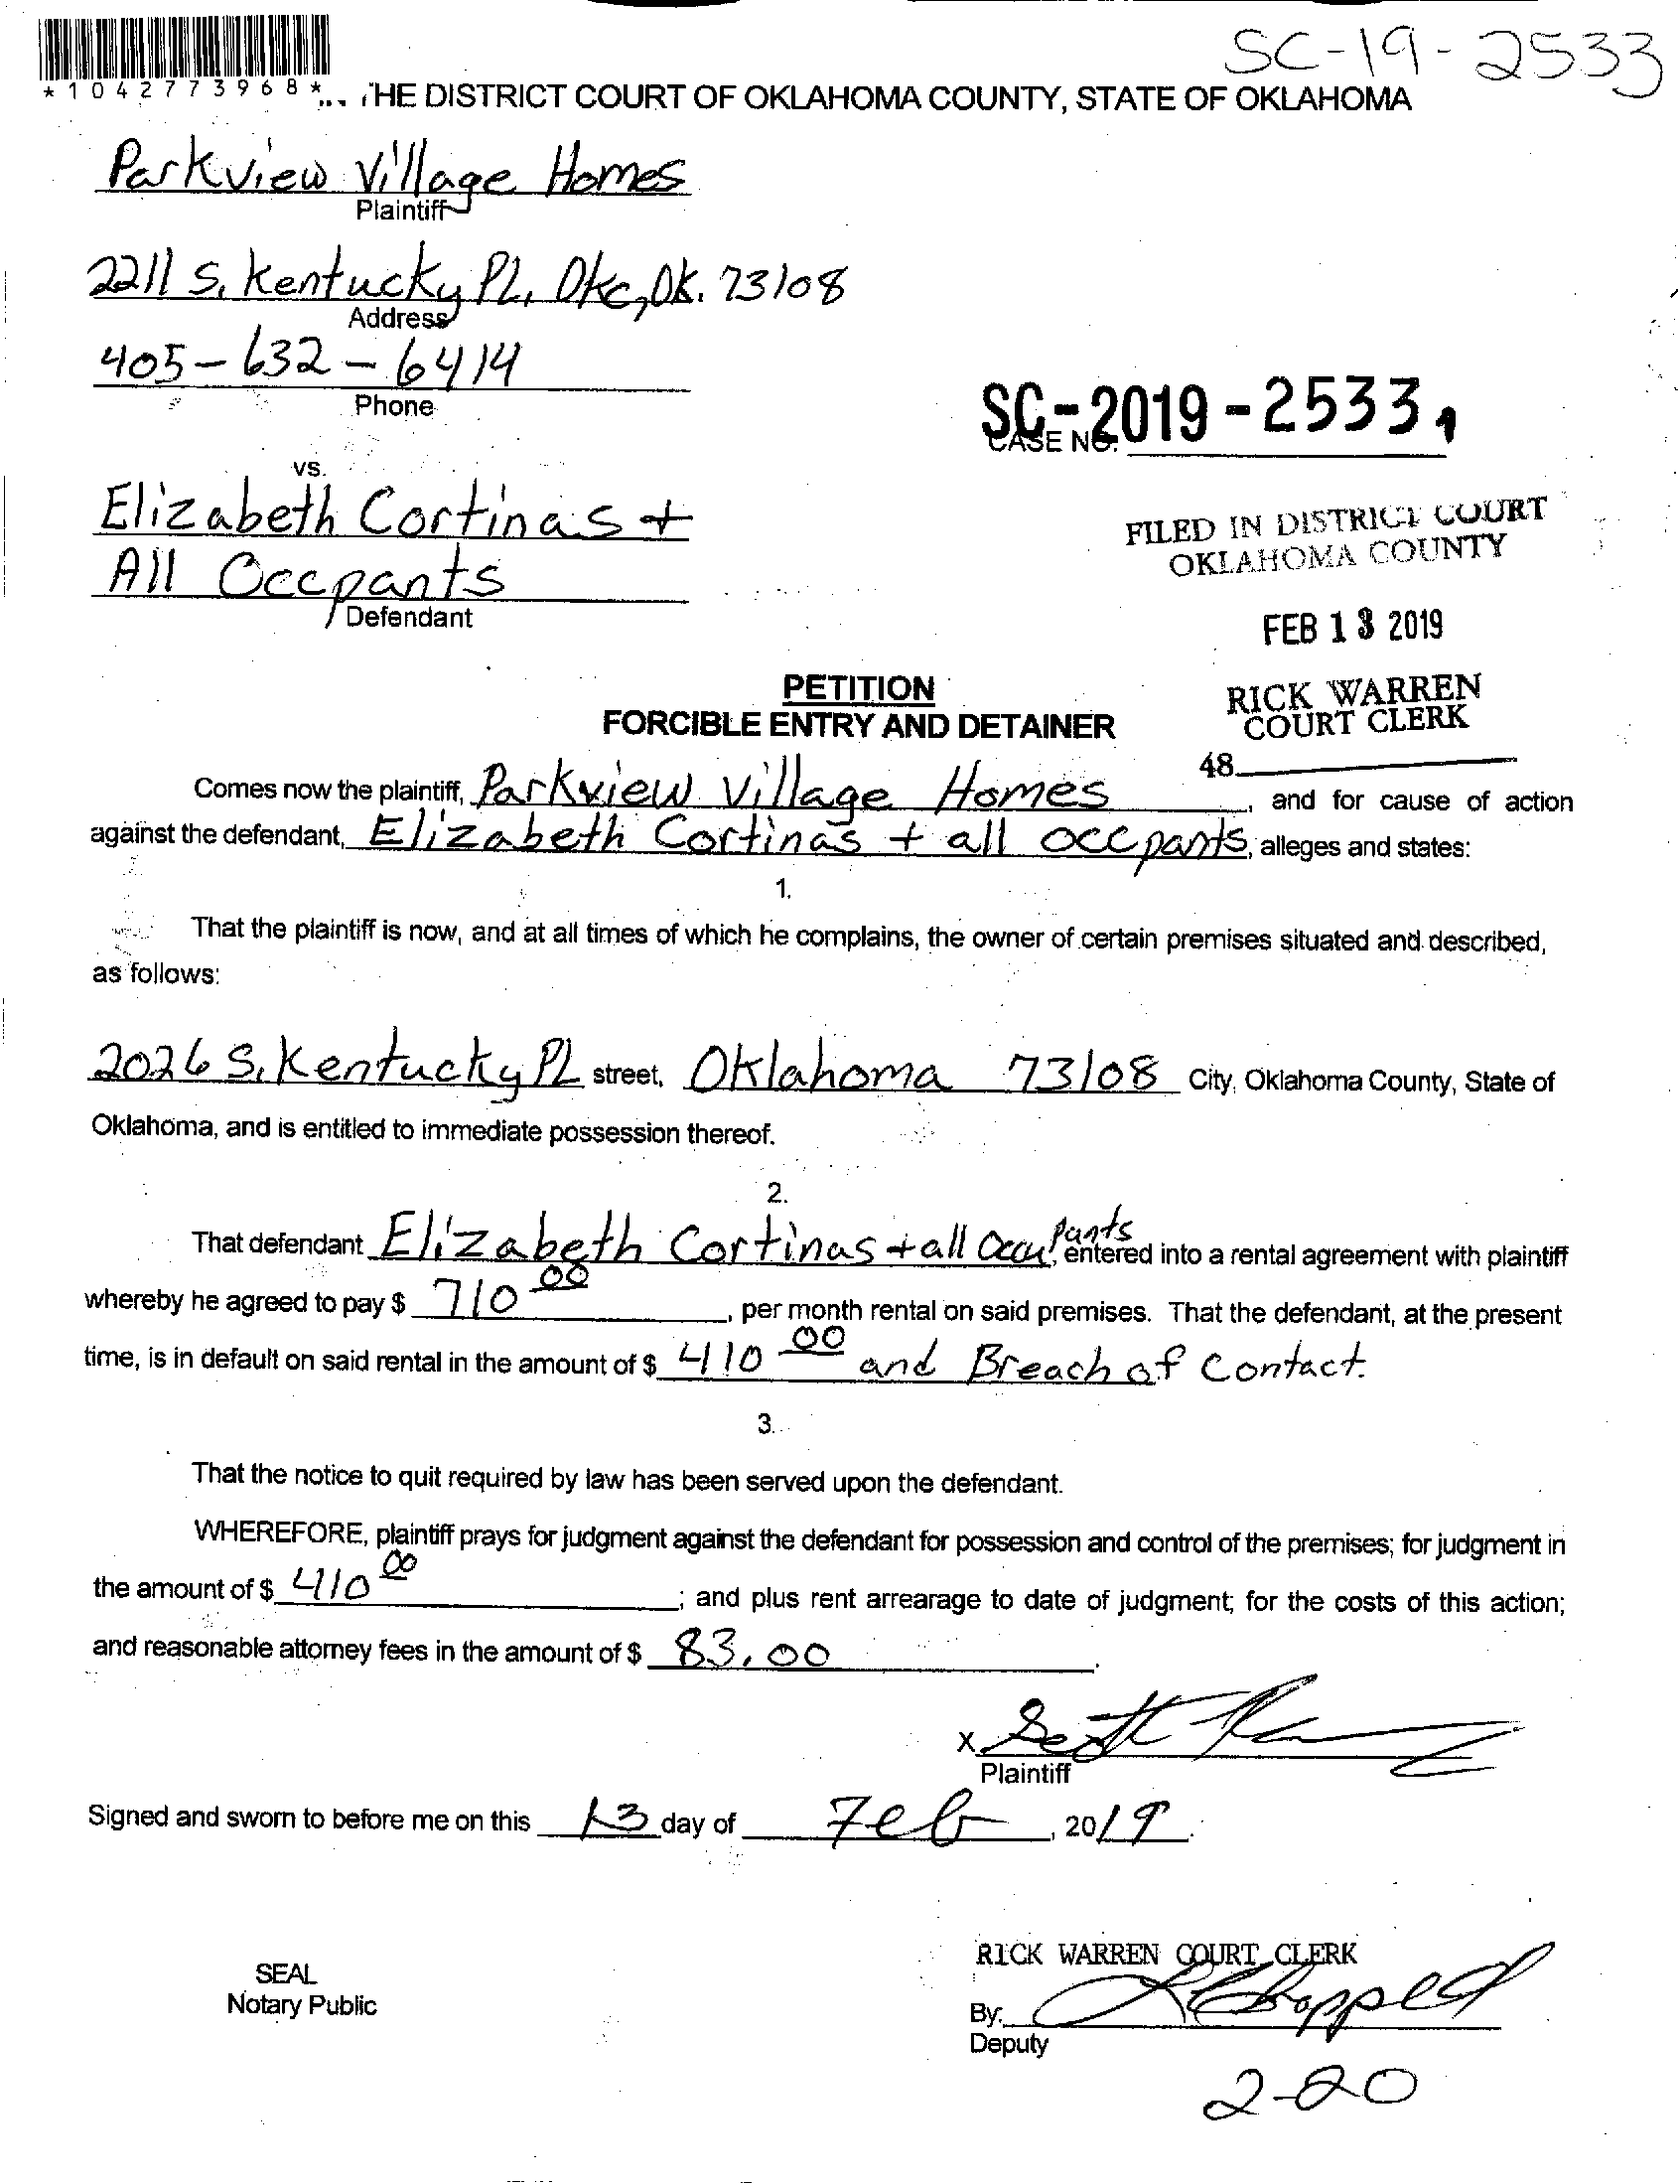 SC-19-2533
*1042773968*
THE DISTRICT COURT OF OKLAHOMA COUNTY, STATE OF OKLAHOMA
Parkview Village Homes
Plaintiff
2211 S. Kentucky Pl, Okc, OK. 73108
Address
405-632-6414
Phone
SC-2019-2533
CASE NO.
vs.
Elizabeth Cortinas +
All Occpants
Defendant
FILED IN DISTRICT COURT
OKLAHOMA COUNTY
FEB 13 2019
RICK WARREN
COURT CLERK
48
PETITION
FORCIBLE ENTRY AND DETAINER
Comes now the plaintiff, Parkview Village Homes, and for cause of action
against the defendant, Elizabeth Cortinas + all occpants, alleges and states:
1.
That the plaintiff is now, and at all times of which he complains, the owner of certain premises situated and described,
as follows:
2026 S. Kentucky Pl street, Oklahoma 73108 City, Oklahoma County, State of
Oklahoma, and is entitled to immediate possession thereof.
2.
That defendant Elizabeth Cortinas + all Occupants, entered into a rental agreement with plaintiff
whereby he agreed to pay $ 710 00, per month rental on said premises. That the defendant, at the present
time, is in default on said rental in the amount of $ 410 00 and Breach of Contact.
3.
That the notice to quit required by law has been served upon the defendant.
WHEREFORE, plaintiff prays for judgment against the defendant for possession and control of the premises; for judgment in
the amount of $ 410 00; and plus rent arrearage to date of judgment; for the costs of this action;
and reasonable attorney fees in the amount of $ 83.00.
X
Plaintiff
Signed and sworn to before me on this 13 day of Feb, 2019.
SEAL
Notary Public
RICK WARREN COURT CLERK
By:
Deputy
2-20